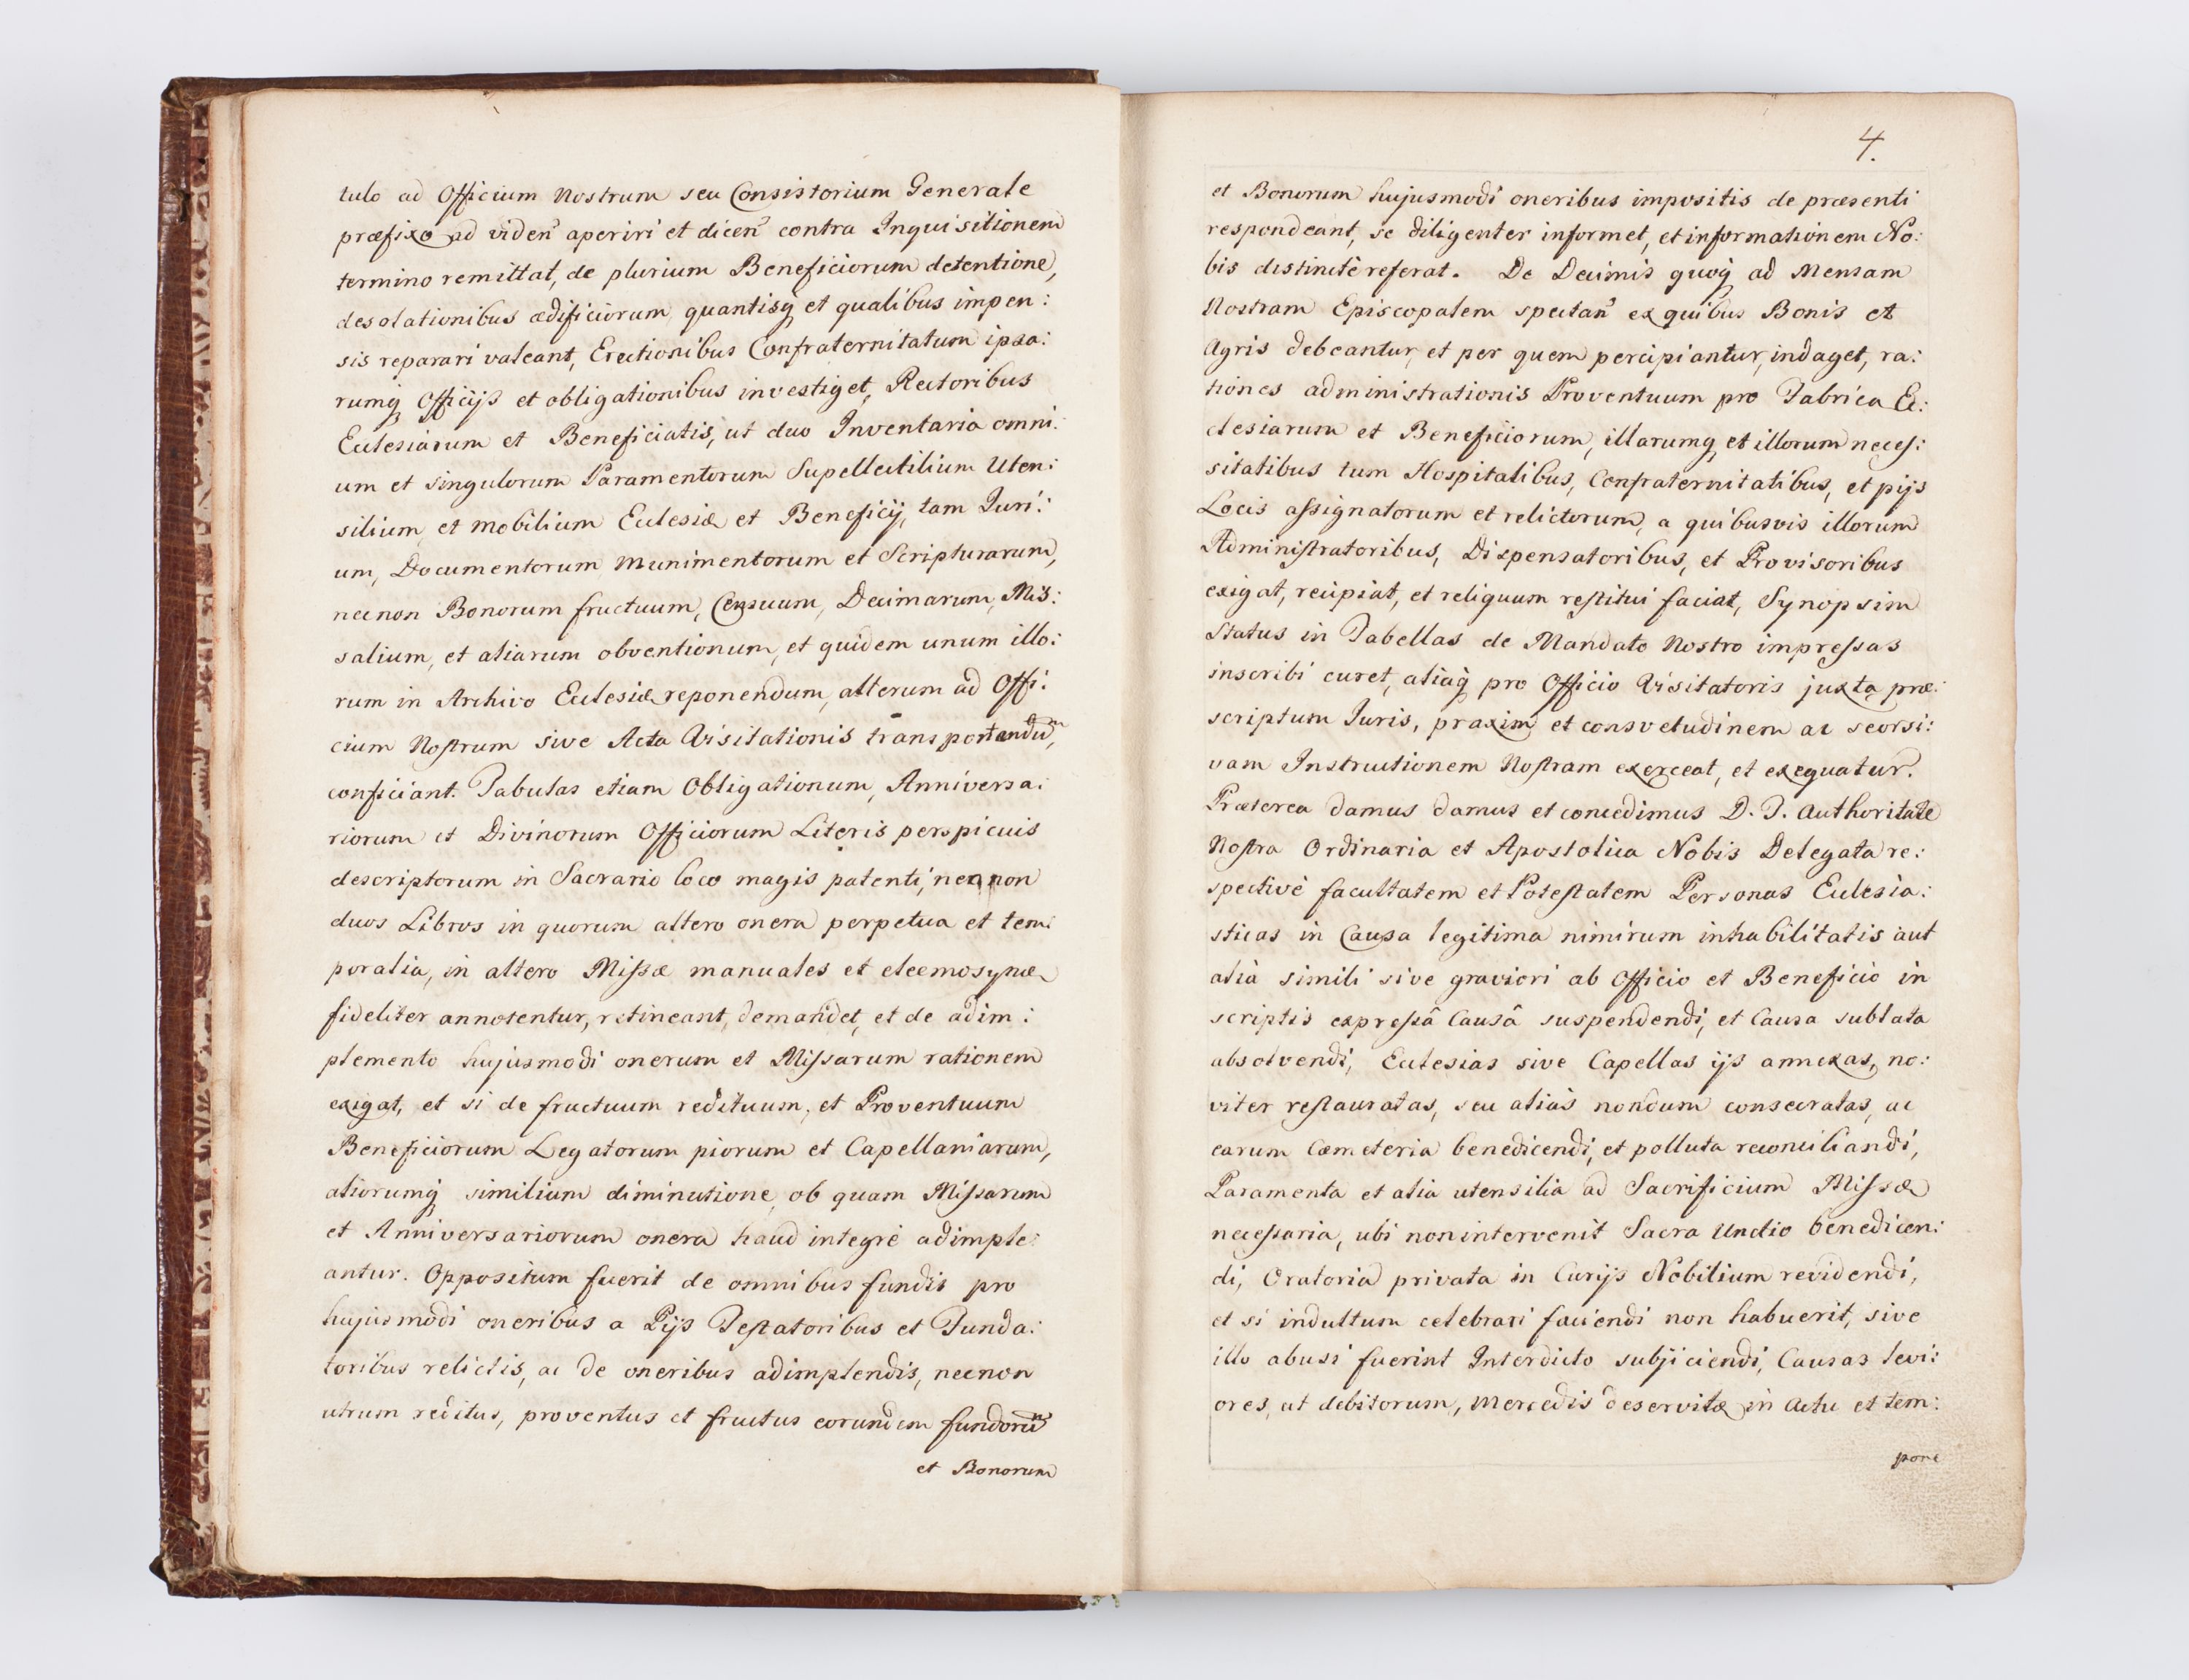 tulo ad Officium Nostrum seu Consistorium Generale
præfixo ad viden̄ aperiri et dicen̄ contra Inquisitionem
termino remittat, de plurium Beneficiorum detentione,
desolationibus ædificiorum quantisq́ et qualibus impen:
sis reparari valeant, Erectionibus Confraternitatum ipsa:
rumq́ Officijs et obligationibus investiget, Rectoribus
Ecclesiarum et Beneficiatis, ut duo Inventaria omni:
um et singulorum Paramentorum Supellectilium Uten:
silium, et mobilium Ecclesiæ et Beneficij, tam Juri:
um, Documentorum Munimentorum et Scripturarum,
necnon Bonorum fructuum, Censuum, Decimarum, Mis:
salium, et aliarum obventionum, et quidem unum illo:
rum in Archivo Ecclesiæ reponendum, alterum ad Offi:
cium Nostrum sive Acta Visitationis transportandū,
conficiant. Tabulas etiam Obligationum, Anniversa:
riorum et Divinorum Officiorum Literis perspicuis
descriptorum in Sacrario loco magis patenti, necnon
duos Libros in quorum altero onera perpetua et tem:
poralia, in altero Missæ manuales et eleemosynæ
fideliter annotentur, retineant, demandet, et de adim:
plemento hujusmodi onerum et Missarum rationem
exigat, et si de fructuum redituum, et Proventuum
Beneficiorum Legatorum piorum et Capellaniarum,
aliorumq́ similium diminutione, ob quam Missarum
et Anniversariorum onera haud integrè adimple:
antur. Oppositum fuerit de omnibus fundis pro
hujusmodi oneribus a Pijs Testatoribus et Funda:
toribus relictis, ac de oneribus adimplendis, necnon
utrum reditus, proventus et fructus eorundem fundorū
et Bonorum
4.
et Bonorum hujusmodi oneribus impositis de præsenti
respondeant, se diligenter informet, et informationem No:
bis distinctè referat. De Decimis quoq́ ad Mensam
Nostram Episcopalem spectan̄ ex quibus Bonis et
Agris debeantur, et per quem percipiantur, indaget, ra:
tiones administrationis Proventuum pro Fabrica Ec:
clesiarum et Beneficiorum, illarumq́ et illorum neces:
sitatibus tum Hospitalibus, Confraternitatibus, et pijs
Locis assignatorum et relictorum, a quibusvis illorum
Administratoribus, Dispensatoribus, et Provisoribus
exigat, recipiat, et reliquum restitui faciat, Synopsim
Status in Tabellas de Mandato Nostro impressas
inscribi curet, aliaq́ pro Officio Visitatoris juxta præ:
scriptum Juris, praxim et consvetudinem ac seorsi:
vam Instructionem Nostram exerceat, et exequatur.
Præterea damus damus et concedimus D. T. Authoritate
Nostra Ordinaria et Apostolica Nobis Delegata re:
spectivè facultatem et Potestatem Personas Ecclesia:
sticas in Causa legitima nimirum inhabilitatis aut
aliâ simili sive graviori ab Officio et Beneficio in
scriptis expressâ Causâ suspendendi, et Causa sublata
absolvendi, Ecclesias sive Capellas ijs annexas, no:
viter restauratas, seu aliàs nondum consecratas, ac
earum Cæmeteria benedicendi, et polluta reconciliandi,
Paramenta et alia utensilia ad Sacrificium Missæ
necessaria, ubi non intervenit Sacra Unctio benedicen:
di, Oratoria privata in Curijs Nobilium revidendi,
et si indultum celebrari faciendi non habuerit, sive
illo abusi fuerint Interdicto subjiciendi, Causas levi:
ores, ut debitorum, Mercedis deservitæ in Actu et tem:
pore